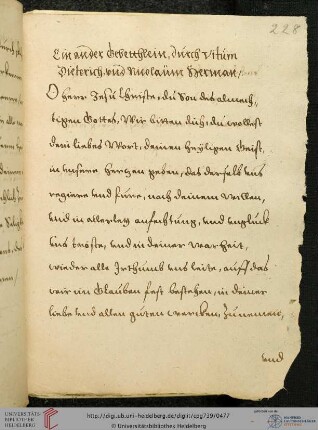 228
Ein ander Gebettlein, durch Vitum
Dieterich vnd Nicolaum Herman,
O herr Jesu Christe, du Son des almech,
tigen Gottes, Wir bitten dich, du wollest
dein liebes Wort, deinen heyligen Geist,
in unsere hertzen geben, das derselb vns
regiere vnd füre, nach deinem willen,
vnd in allerley anfechtung, vnd vnglück
vns tröste, vnd in deiner warheit,
wieder alle Irthumb vns leite, auff das
wir im Glauben fest bestehen, in deiner
liebe vnd allen guten wercken, zunemen,
vnd
UNIVERSITÄTS-
BIBLIOTHEK
HEIDELBERG
http://digi.ub.uni-heidelberg.de/diglit/cpg729/0477
© Universitätsbibliothek Heidelberg